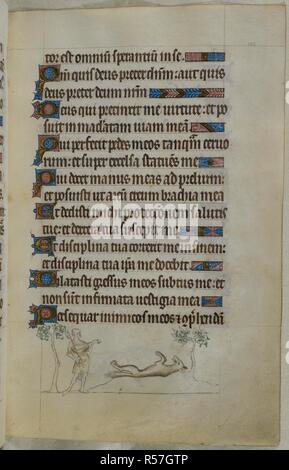 tor est omnium sperantium in se.
Qm quis deus preter dnm: aut quis
deus preter deum nrm
Deus qui precinxit me uirtute: et po
suit inmaculatam uiam meam
Qui perfecit pedes meos tanqm ceruo
rum: et super excelsa statuens me
Qui docet manus meas ad prelium:
et posuisti ut arcum ereum brachia mea
Et dedisti michi protectionem salutis
tue: et dextera tua suscepit me
Et disciplina tua correxit me in finem:
et disciplina tua ipa me docebit
Dilatasti gressus meos subtus me: et
non sunt infirmata uestigia mea
Persequar inimicos meos et
alamy
Image ID: R57GTP
www.alamy.com